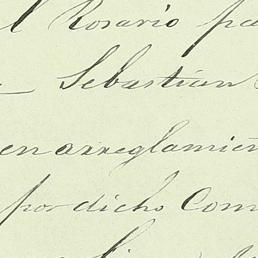 l Rosario pa
Sebastian
en arreglamien
por dicho Com